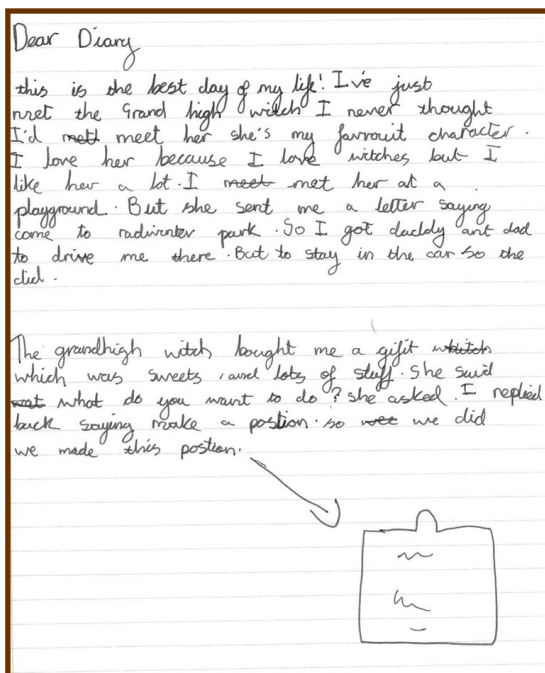 Dear Diary
this is the best day of my life! I've just
met the Grand high witch I never thought
I'd meet her she's my favrouit character.
I love her because I love witches but I
like her a lot. I met her at a
playground. But she sent me a letter saying
come to park. So I got daddy ant dad
to drive me there. But to stay in the car so the
did.
The grandhigh witch bought me a gifit
which was sweets, and lots of stuff. She said
what do you want to do? she asked. I replied
back saying make a postion. so we did
we made this postion.